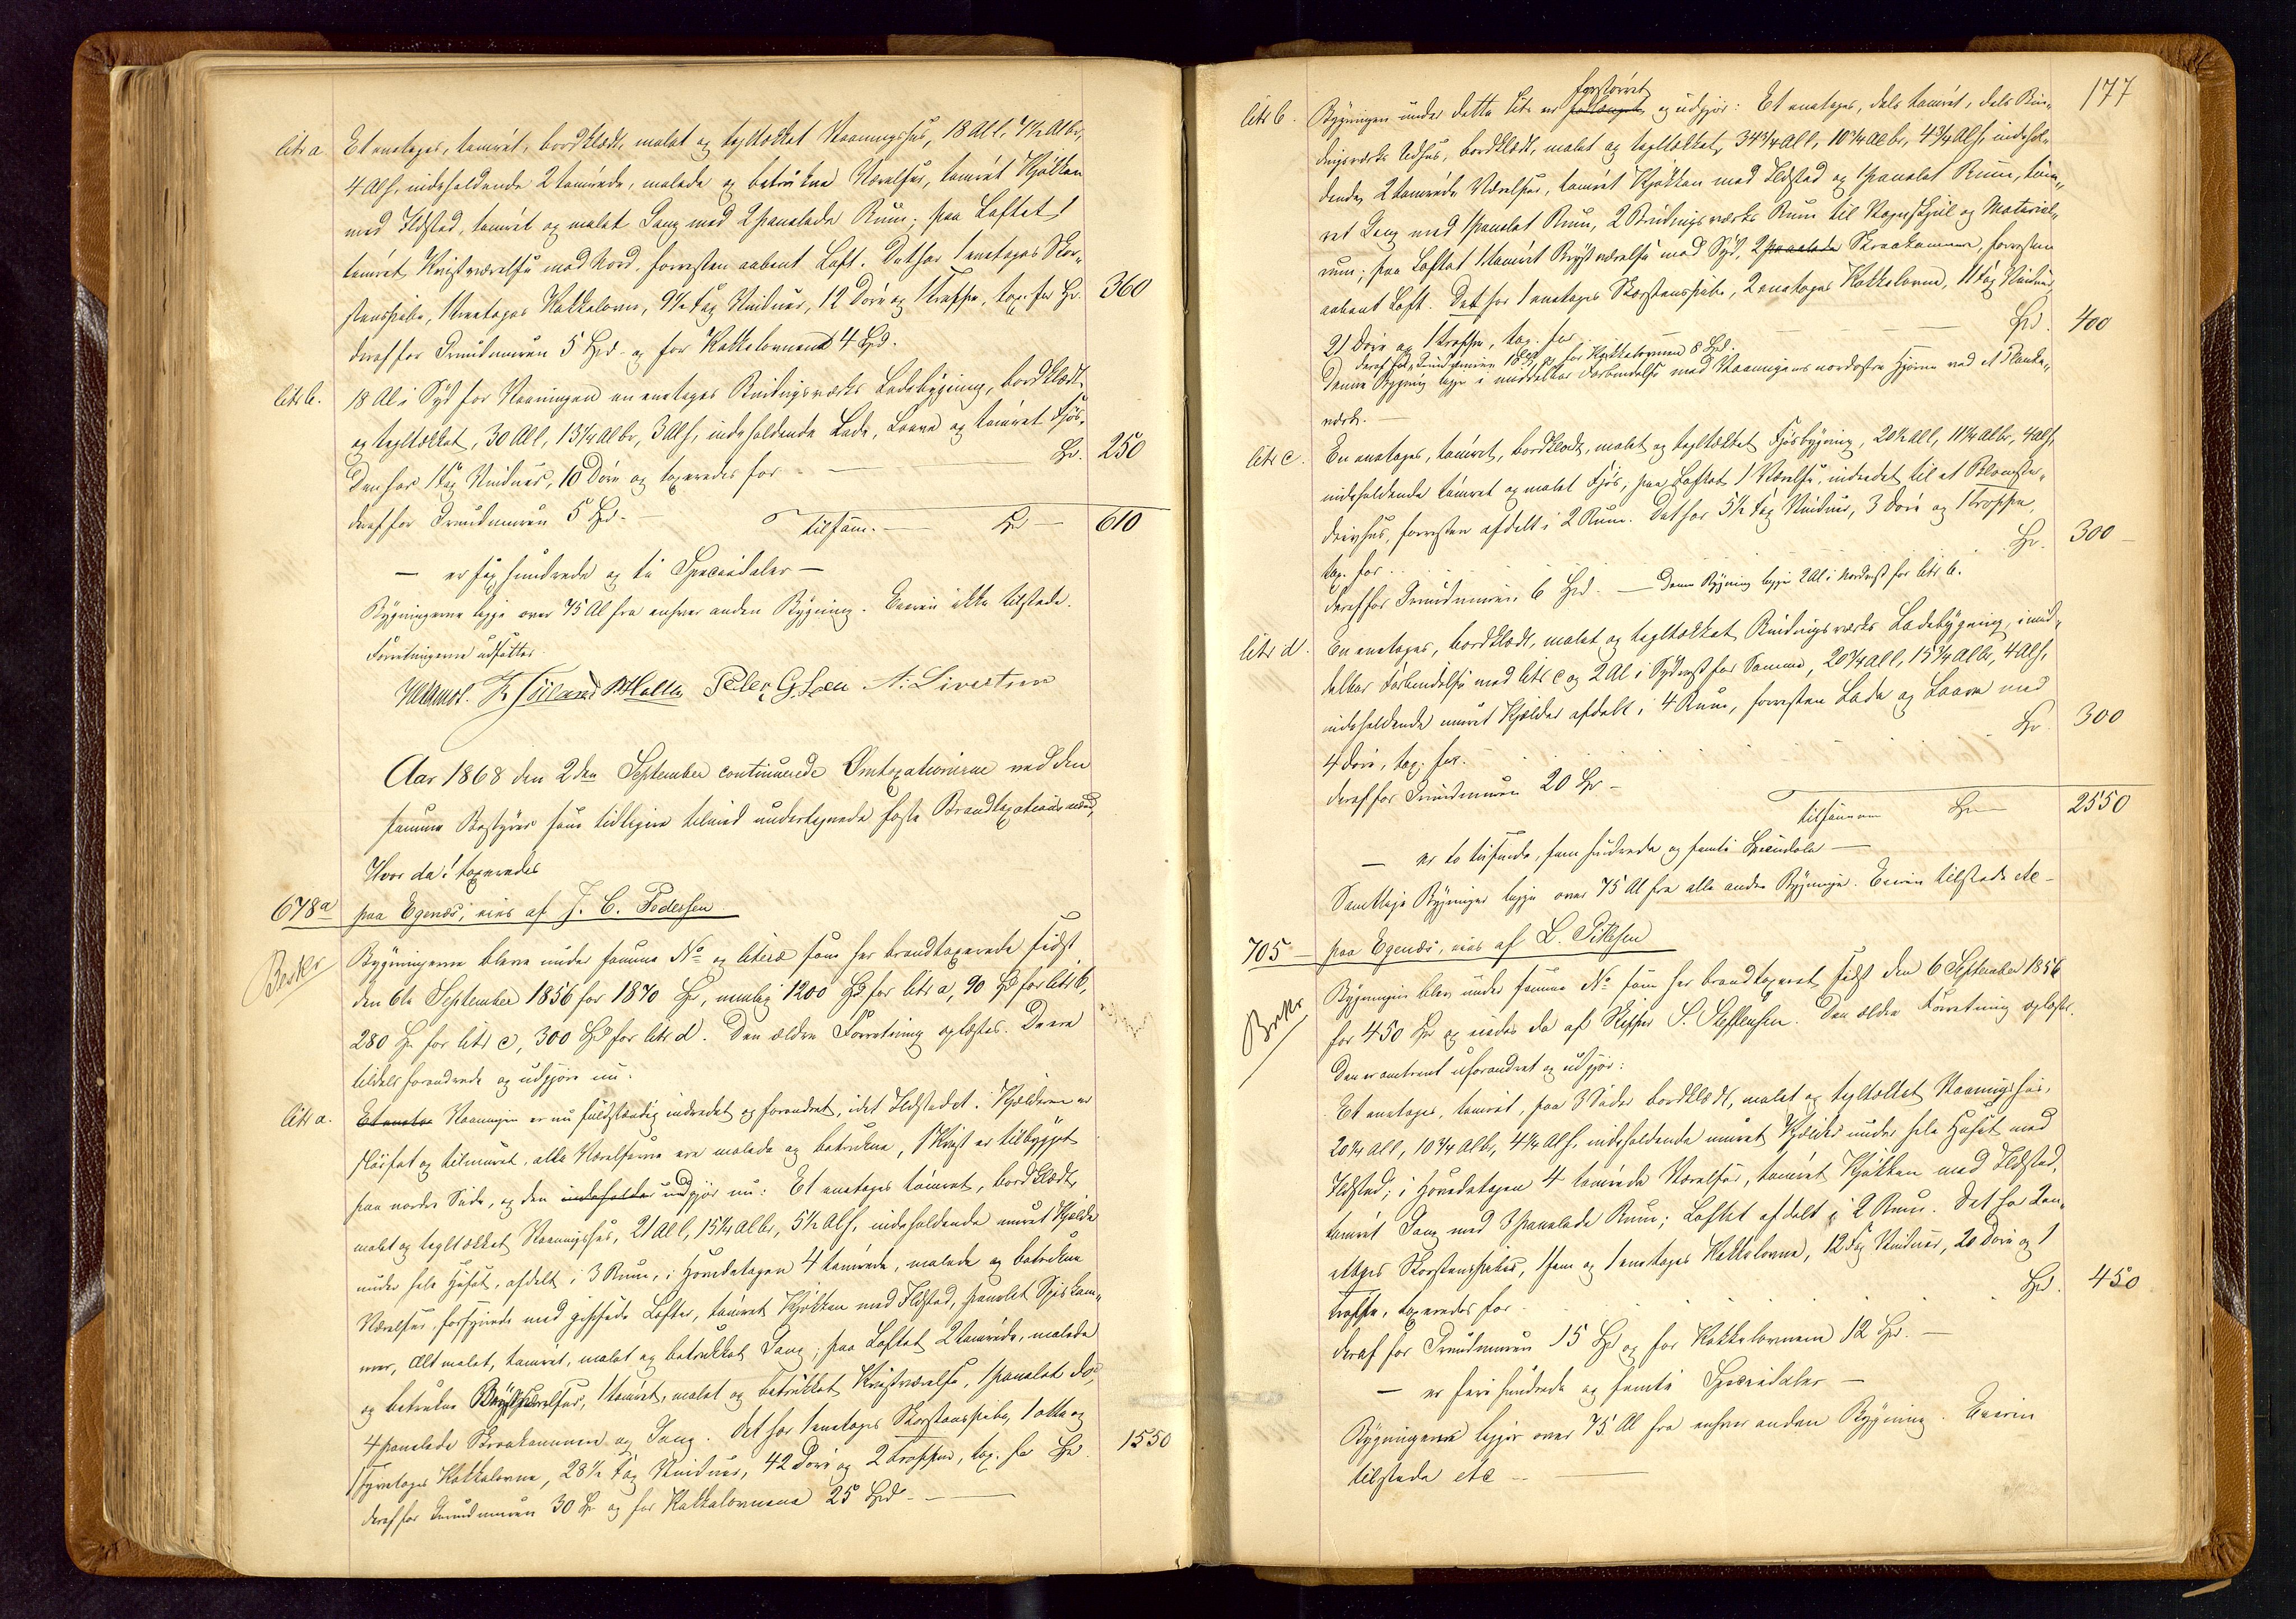 Litr a Et enetages, tømret, bordklædt, malet og tegltækket Vaaningshus, 18 Al l, 9½ Al br,
4 Al h, indeholdende 2 tømrede, malede og betrukne Værelser, tømret Kjøkken
med Ildsted, tømret og malet Gang med 2 panelede Rum; paa Loftet 1
tømret Kvistværelse mod Nord, forresten aabent Loft. Det har 1 enetages Skor-
stenspibe, 1 Kakkelovn, 9½ Fag Vinduer, 12 Døre og 1 Trappe, tax. for Spd. 360
deraf for Grundmuren 5 Spd. og for Kakkelovnene 4 Spd.
Litr b. 18 Al i Syd for Vaaningen en enetages Bindingsværks Ladebygning, bordklædt
og tegltækket, 30 Al l, 13¼ Al br, 3 Al h, indeholdende Lade, Laave og tømret Fjøs.
Den har 1 Fag Vinduer, 10 Døre og taxeredes for Sp. 250
deraf for Grundmuren 5 Spd.
tilsam. Spd 610
— er sex hundrede og ti Speciedaler —
Bygningerne ligge over 75 Al fra enhver anden Bygning. Eieren ikke tilstede.
Forretningerne afsluttes.
Peter G. Soen A. Sivertsen
Aar 1868 den 2den September continuerede Omtaxationerne ved den
samme Bestyrer som tidligere tilmed undertegnede faste Brandtaxationsmænd,
Hvor da! taxeredes
678a paa Egenæs, eies af J. C. Pedersen
Beskr Bygningerne bleve under samme No og literæ som her brandtaxerede sidst
den 6te September 1856 for 1870 Spd, nemlig 1200 Spd for litr a, 90 Spd for litr b,
280 Sp for litr c, 300 Spd for litr d. Den ældre Forretning oplæstes. De ere
tildels forandrede og udgjøre nu.
Litr a. Et enetes Vaaningen er nu fuldstændig indredet og forandret, idet Ildstedet i Kjelderen er
sløifet og tilmuret, alle Værelserne ere malede og betrukne, 1 Kvist er tilbygget
paa nordre Side, og den indeholder udgjør nu: Et enetages tømret, bordklædt,
malet og tegltækket Vaaningshus, 21 Al l, 15¼ Al br, 5½ Al h, indeholdende muret Kjelder
under hele Huset, afdelt i 3 Rum, i Hovedetagen 4 tømrede, malede og betrukne
Værelser, forsynede med gipsede Lofter, tømret Kjøkken med Ildsted, panelet Spiskam-
mer, Alt malet, tømret, malet og betrukket Gang; paa Loftet 2 tømrede, malede
og betrukne Brystværelser, 1 tømret, malet og betrukket Kvistværelse, 1 panelet do,
4 panelede Skraakammere og Gang. Det har 1 enetages Skorstenspibe, 1 otte og
1 fyretages Kakkelovne, 28½ Fag Vinduer, 42 Døre og 2 Trapper, tax. for Spd. 1550
deraf for Grundmuren 30 Sp og for Kakkelovnene 25 Spd.
177
forstørret
Litr b. Bygningen under dette Litr er forlænget og udgjør: Et enetages, dels tømret, dels Bin-
dingsværks Udhus, bordklædt, malet og tegltækket, 34¾ Al l, 10¾ Al br, 4¾ Al h, indehol-
dende 2 tømrede Værelser, tømret Kjøkken med Ildsted og 1 panelet Rum, tøm-
ret Gang med 1 panelet Rum, 2 Bindingsværks Rum til Vognskjul og Material-
rum; paa Loftet 1 tømret Brystværelse mod Syd, 2 panelede Skraakammere, forresten
aabent Loft. Det har 1 enetages Skorstenspibe, 2 enetages Kakkelovne, 11 Fag Vinduer,
21 Døre og 1 Trappe, tax. for Spd. 400
deraf for Grundmuren 10 Spd. og for Kakkelovnene 8 Spd.
Denne Bygning ligger i umiddelbar Forbindelse med Vaaningens nordøstre Hjørne ved et Planke-
værk.
Litr c. En enetages, tømret, bordklædt, malet og tegltækket Fjøsbygning, 20½ Al l, 11¼ Al br, 4 Al h,
indeholdende tømret og malet Fjøs; paa Loftet 1 Værelse, indredet til et Blomster-
drivhus, forresten afdelt i 2 Rum. Det har 5½ Fag Vinduer, 3 Døre og 1 Trappe,
tax. for Sp. 300
deraf for Grundmuren 6 Spd. — Denne Bygning ligger 2 Al i Nordvest for litr b.
Litr d. En enetages, bordklædt, malet og tegltækket Bindingsværks Ladebygning, i umid-
delbar Forbindelse med litr c og 2 Al i Sydvest for Samme, 20¾ Al l, 15¾ Al br, 4 Al h,
indeholdende muret Kjelder afdelt i 4 Rum, forresten Lade og Laave med
4 Døre, tax. for Sp. 300
deraf for Grundmuren 20 Sp
tilsammen Sp 2550
— er to tusinde, fem hundrede og femti Speciedaler —
Samtlige Bygninger ligge over 75 Al fra alle andre Bygninger. Eieren tilstede etc
705 paa Egenæs, eies af L. Pittersen
Beskr Bygningen blev under samme No som her brandtaxeret sidst den 6 September 1856
for 450 Spd og eiedes da af Skipper S. Steffensen. Den ældre Forretning oplæstes.
Den er omtrent uforandret og udgjør:
Et enetages, tømret, paa 3 Sider bordklædt, malet og tegltækket Vaaningshus,
20¼ Al l, 10¾ Al b, 4¼ Al h, indeholdende muret Kjelder under hele Huset med
Ildsted; i Hovedetagen 4 tømrede Værelser, tømret Kjøkken med Ildsted,
tømret Gang med 3 panelede Rum; Loftet afdelt i 2 Rum. Det har 2 en-
etages Skorstenspiber, 1 fem og 1 enetages Kakkelovne, 12 Fag Vinduer, 20 Døre og 1
Trappe, taxeredes for Spd. 450
deraf for Grundmuren 15 Spd og for Kakkelovnene 12 Spd. —
— er fire hundrede og femti Speciedaler —
Bygningerne ligger over 75 Al fra enhver anden Bygning. Eieren
tilstede etc —